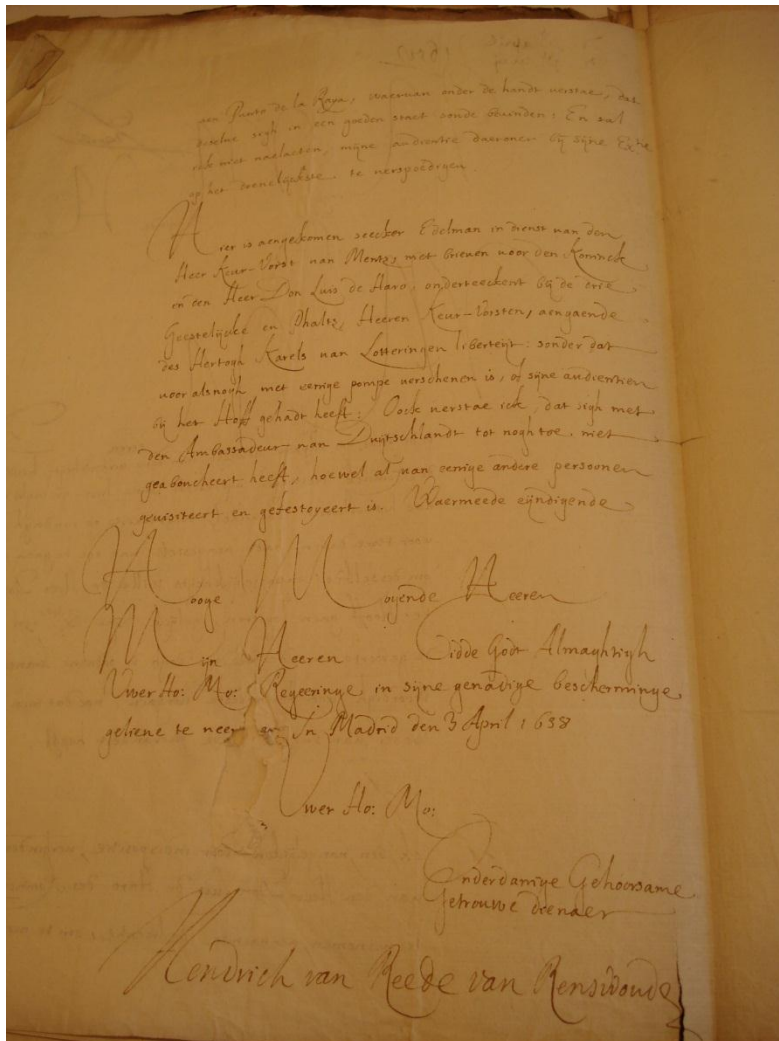 van Punto de la Rapa, waervan onder de handt verstae, dat
deselve sigh in een goeden staet soude bevinden: En sal
ick niet naelaeten, mijne audientie daerover bij sijne Ex.tie
op het te verspoedigen.
Hier is aengekomen seecker Edelman in dienst van den
Heer Keur-Vorst van Mentz, met brieven voor den Koninck
en den Heer Don Luis de Haro, onderteeckent bij de drie
Geestelijcke en Phaltz, Heeren Keur-Vorsten, aengaende
des Hertogh Karels van Lotteringen liberteijt: sonder dat
voor alsnogh met eenige pompe verschenen is, of sijne audientien
bij het Hoff gehadt heeft: Oock verstae ick, dat sigh met
den Ambassadeur van Duijtschlandt tot nogh toe, niet
geaboucheert heeft, hoewel al van eenige andere persoonen
gevisiteert en gefestoyeert is. Waermeede eijndigende
Hooge Moyende Heeren
Mijn Heeren Bidde Godt Almaghtigh
Uwer Ho: Mo: Regeeringe in sijne genadige bescherminge
gelieve te neemen In Madrid den 3 April 1658
Uwer Ho: Mo:
Onderdanige Gehoorsame
Getrouwe dienaer
Hendrich van Reede van Renswoude